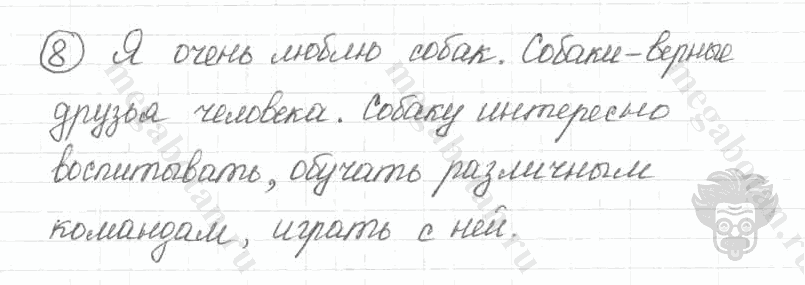 ⑧ Я очень люблю собак. Собаки – верные
друзья человека. Собаку интересно
воспитывать, обучать различным
командам, играть с ней.
megabotan.ru
megabotan.ru
megabotan.ru